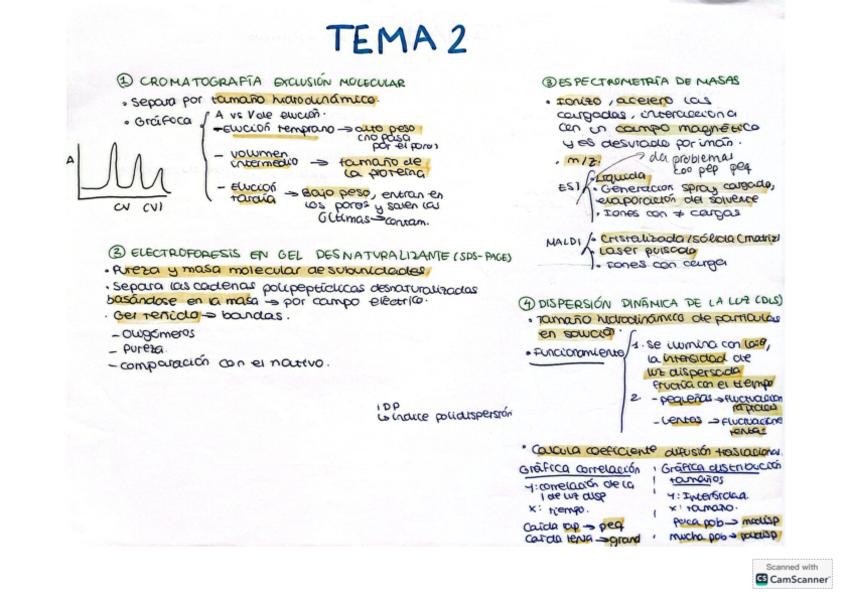 TEMA 2
① CROMATOGRAFÍA EXCLUSIÓN MOLECULAR
• Separa por tamaño hidrodinámico.
• Gráfica
A vs Vol de elución.
- Elución temprano → alto peso
(no pasa
por el poros)
- volumen
intermedio → tamaño de
la proteína
- Elución
tardía → Bajo peso, entran en
los poros y salen las
últimas → contam.
A
② ELECTROFORESIS EN GEL DESNATURALIZANTE (SDS-PAGE)
• Pureza y masa molecular de subunidades
• Separa las cadenas polipeptídicas desnaturalizadas
basándose en la masa → por campo eléctrico.
• Gel teñido → bandas.
- oligómeros
- Pureza
- comparación con el nativo.
IDP
↳ índice polidispersión
③ ESPECTROMETRÍA DE MASAS
• Ionizo, acelero las
cargadas, interacciona
con un campo magnético
y es desviado por imán.
• m/z:
da problemas
con pep peq
ESI
• Líquida
• Generación spray cargado,
evaporación del solvente
• Iones con ≠ cargas
MALDI
• Cristalizada/sólida (matriz)
• Laser pulsado
• Iones con carga
④ DISPERSIÓN DINÁMICA DE LA LUZ (DLS)
• Tamaño hidrodinámico de partículas
en solución.
• Funcionamiento
1. Se ilumina con
la intensidad de
luz dispersada
fluctúa con el tiempo
2. - pequeñas → fluctuación
rápidas
- Lentas → fluctuación
lentas
• Calcula coeficiente difusión traslacional.
Gráfica correlación
Y: correlación de la
I de luz disp
X: tiempo.
Caída rap → peq
Caída lenta → grand
Gráfica distribución
tamaños
Y: Intensidad.
X: tamaño.
Poca pob → modisp
Mucha pob → polidisp
Scanned with
CS CamScanner